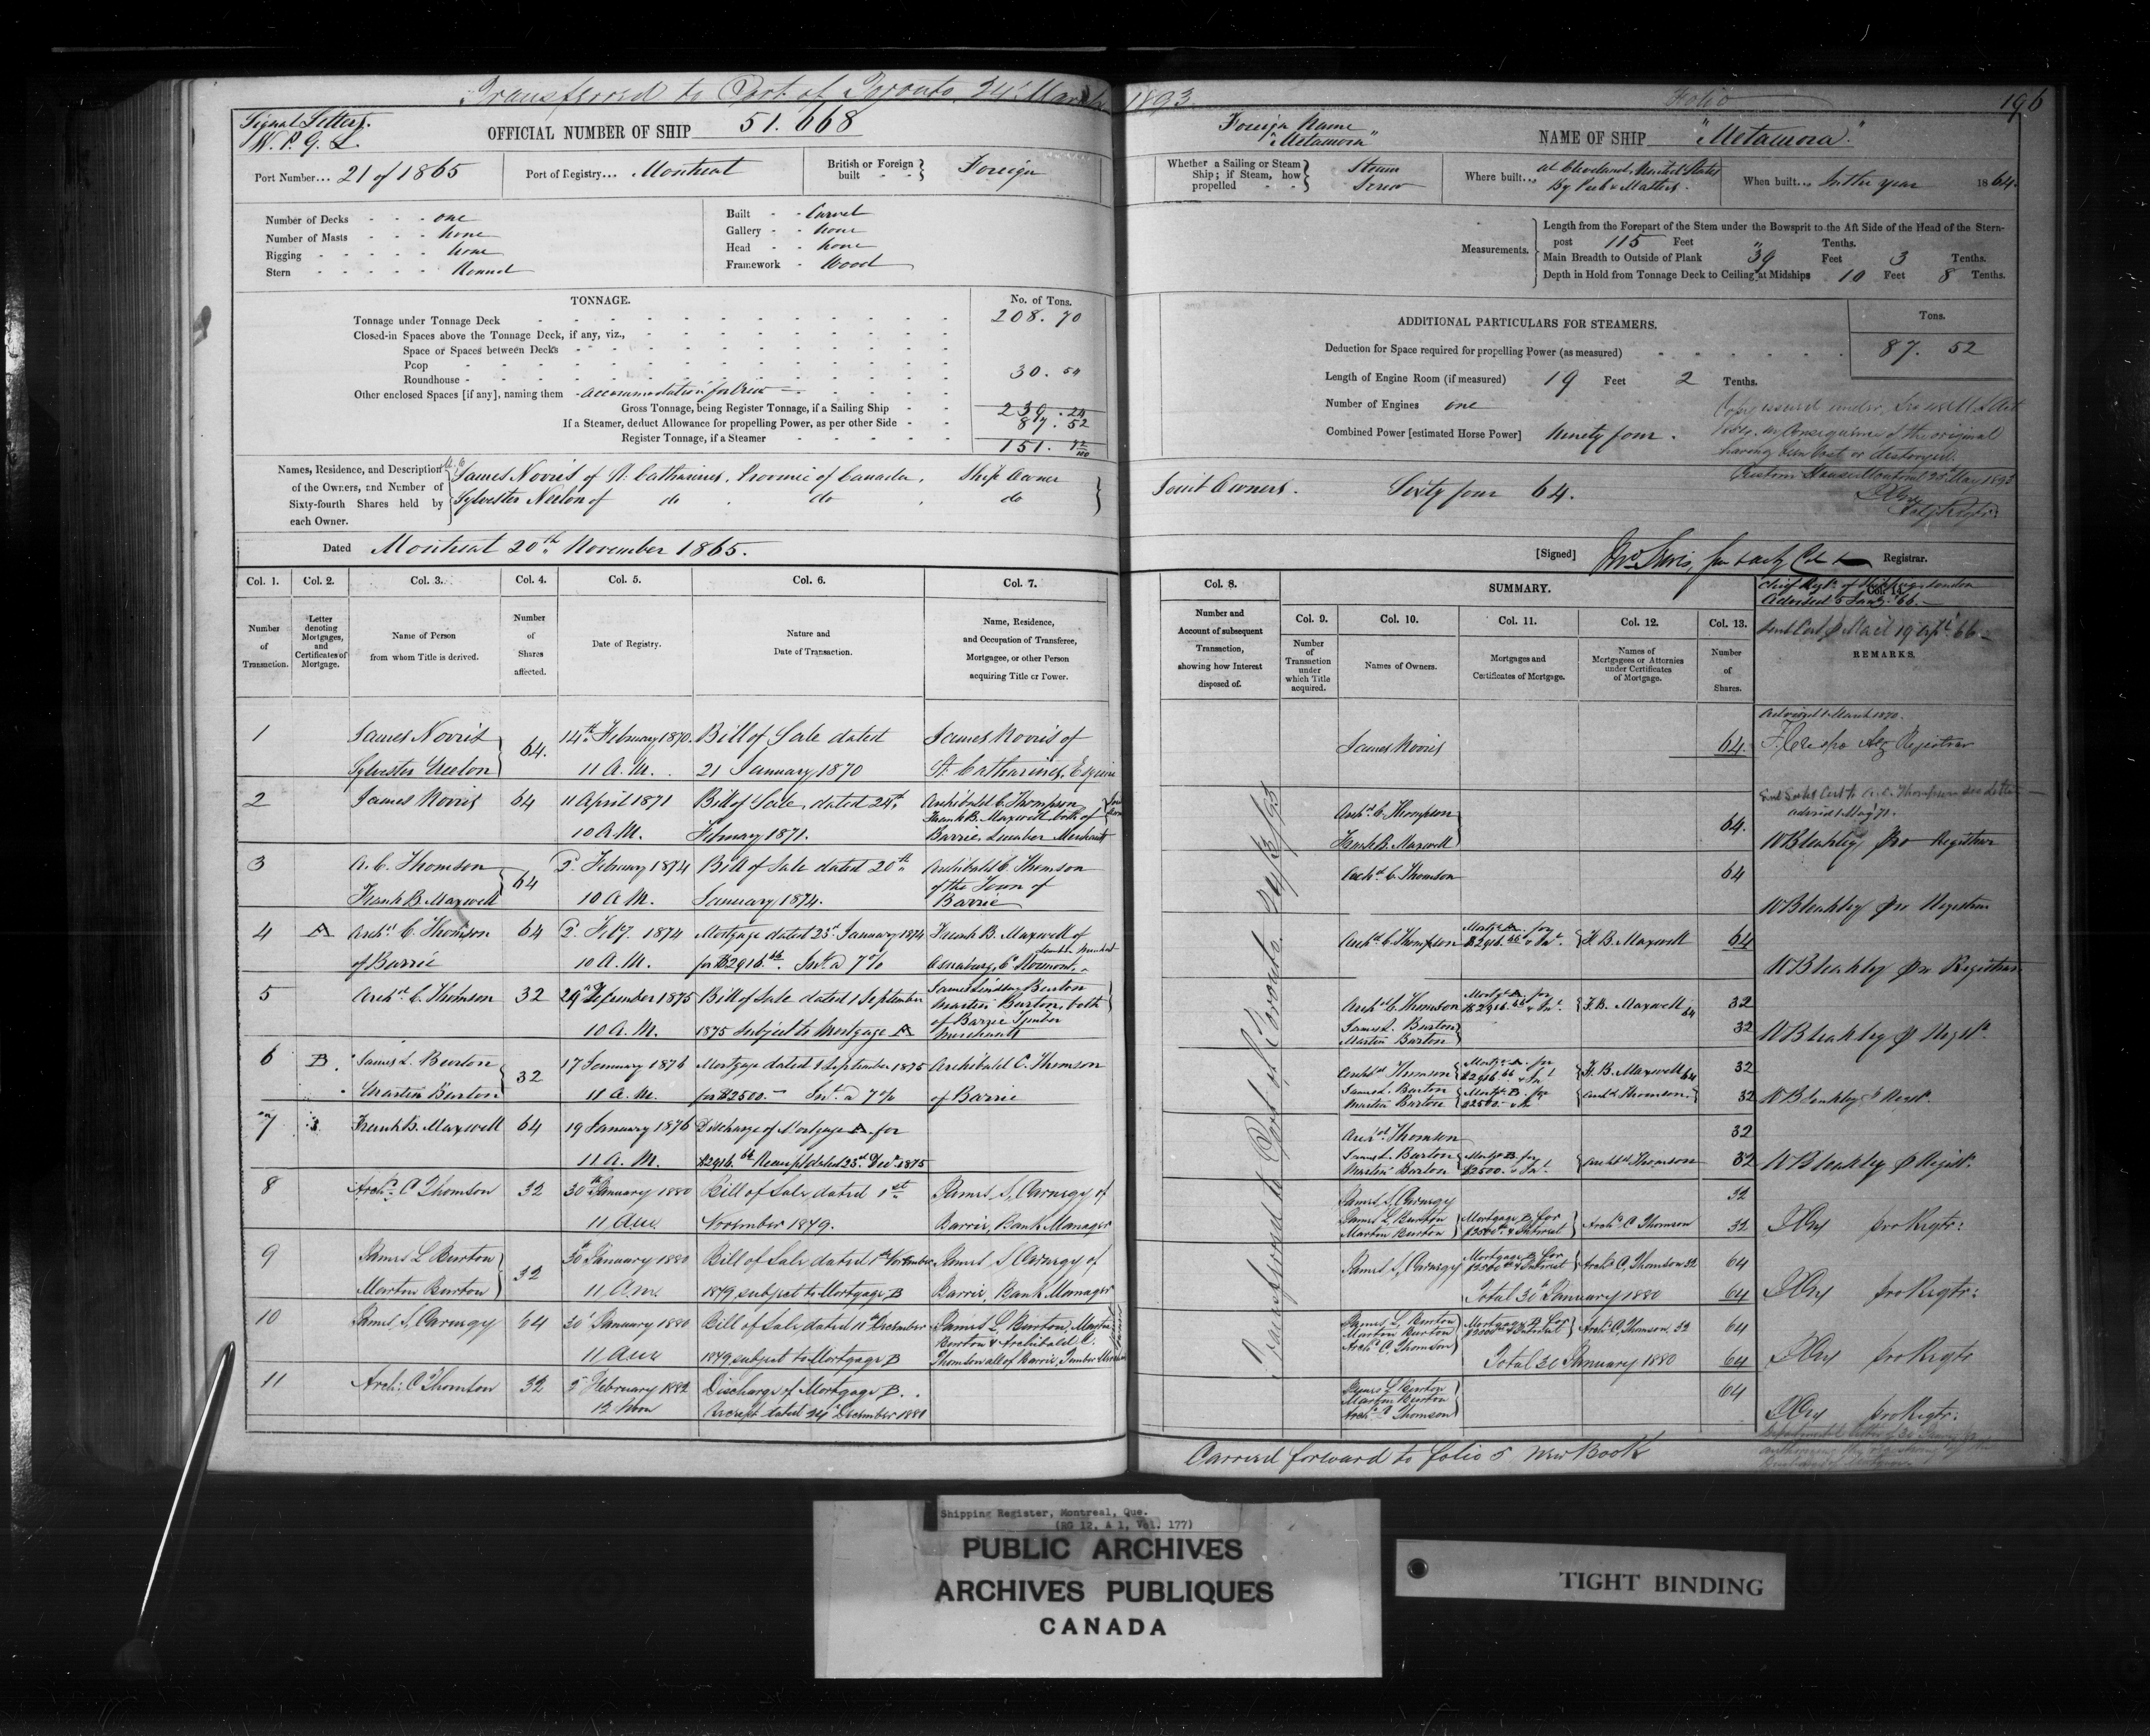 Transferred to Port of Toronto, 24 March 1893
Folio 196
Signal Letters.
W. P. G. L.
OFFICIAL NUMBER OF SHIP 51.668
Foreign Name
"Metamora"
NAME OF SHIP "Metamora."
Port Number... 21 of 1865
Port of Registry... Montreal
British or Foreign built - - Foreign
Whether a Sailing or Steam Ship; if Steam, how propelled - - Steam Screw
Where built... at Cleveland, United States By Peck & Masters.
When built... In the year 1864.
Number of Decks - - - one
Number of Masts - - - none
Rigging - - - - - none
Stern - - - - - Round
Built - - Carvel
Gallery - - none
Head - - none
Framework - Wood
Measurements.
Length from the Forepart of the Stem under the Bowsprit to the Aft Side of the Head of the Stern-
post 115 Feet " Tenths.
Main Breadth to Outside of Plank 39 Feet 3 Tenths.
Depth in Hold from Tonnage Deck to Ceiling at Midships 10 Feet 8 Tenths.
TONNAGE.
No. of Tons.
Tonnage under Tonnage Deck 208. 70
Closed-in Spaces above the Tonnage Deck, if any, viz.,
Space or Spaces between Decks
Poop
Roundhouse 30. 54
Other enclosed Spaces [if any], naming them - accommodation for Crew
Gross Tonnage, being Register Tonnage, if a Sailing Ship 239. 24
If a Steamer, deduct Allowance for propelling Power, as per other Side 87. 52
Register Tonnage, if a Steamer 151. 72/100
ADDITIONAL PARTICULARS FOR STEAMERS.
Tons.
Deduction for Space required for propelling Power (as measured) 87. 52
Length of Engine Room (if measured) 19 Feet 2 Tenths.
Number of Engines one
Combined Power [estimated Horse Power] Ninety four.
Copy issued under
in Consequence of the original
having been lost or destroyed.
Custom House Montreal 25 May 1893
Names, Residence, and Description
of the Owners, and Number of
Sixty-fourth Shares held by
each Owner.
James Norris of St. Catharines, Province of Canada, Ship Owner
Sylvester Neelon of do do do
Joint Owners. Sixty four 64.
Dated Montreal 20th November 1865.
[Signed] Registrar.
Col. 1. Col. 2. Col. 3. Col. 4. Col. 5. Col. 6. Col. 7.
Number of Transaction.
Letter denoting Mortgages, and Certificates of Mortgage.
Name of Person from whom Title is derived.
Number of Shares affected.
Date of Registry.
Nature and Date of Transaction.
Name, Residence, and Occupation of Transferee, Mortgagee, or other Person acquiring Title or Power.
Col. 8.
Number and Account of subsequent Transaction, showing how Interest disposed of.
SUMMARY.
Col. 9. Col. 10. Col. 11. Col. 12. Col. 13. Col. 14.
Number of Transaction under which Title acquired.
Names of Owners.
Mortgages and Certificates of Mortgage.
Names of Mortgagees or Attornies under Certificates of Mortgage.
Number of Shares.
Chief Regr. of Shipping London
Advised 5 Jany. 66.
REMARKS.
1 James Norris 64. 14th February 1870. Bill of Sale dated James Norris of
Sylvester Neelon 11 A.M. 21 January 1870 St. Catharines, Esquire
James Norris 64.
Advised 1 March 1870.
2 James Norris 64 11 April 1871 Bill of Sale, dated 24th Archibald C. Thompson
10 A.M. February 1871. Frank B. Maxwell both of
Barrie, Lumber Merchants
Archd. C. Thompson
Frank B. Maxwell 64.
advised 1 May 71.
WBleakley pro Registrar
3 A. C. Thomson 64 2 February 1874 Bill of Sale dated 20th Archibald C. Thomson
Frank B. Maxwell 10 A.M. January 1874. of the Town of
Barrie
Archd. C. Thomson 64
WBleakley pro Registrar
4 A Archd. C. Thomson 64 2 Feby. 1874 Mortgage dated 23d January 1874 Frank B. Maxwell of
of Barrie 10 A.M. for $2916.66 Int. @ 7%
Archd. C. Thompson Mortge A. for $2916.66 & Int. F. B. Maxwell 64
WBleakley pro Registrar
5 Archd. C. Thomson 32 29 December 1875 Bill of Sale dated 1 September James Lindsay Burton
10 A.M. 1875 Subject to Mortgage A Martin Burton, both
of Barrie Timber
Merchants
Archd. C. Thomson Mortge A. for $2916.66 & Int. F. B. Maxwell 64 32
James L. Burton
Martin Burton 32
WBleakley p Regstr.
6 B. James L. Burton 32 17 January 1876 Mortgage dated 1 September 1875 Archibald C. Thomson
Martin Burton 11 A.M. for $2500.— Int. @ 7% of Barrie
Archd. Thomson Mortge A. for $2916.66 & Int. F. B. Maxwell 64 32
James L. Burton
Martin Burton Mortge B. for $2500.— Archd. Thomson 32
WBleakley p Regstr.
7 Frank B. Maxwell 64 19 January 1876 Discharge of Mortgage A. for
11 A.M. $2916.66 Receipt dated 23d Decr. 1875
Archd. Thomson 32
James L. Burton
Martin Burton Mortge B. for $2500. & Int. Archd. Thomson 32
WBleakley p Registr.
8 Archd. C Thomson 32 30th January 1880 Bill of Sale dated 1st James S, Carnegy of
11 Am November 1879. Barrie, Bank Manager
James S, Carnegy 32
James L, Burton
Martin Burton Mortgage B for $2500 & Interest Archd. C Thomson 32
pro Regtr:
9 James L Burton 32 30th January 1880 Bill of Sale dated 1st November James S Carnegy of
Martin Burton 11 Am 1879, subject to Mortgage B Barrie, Bank Manager
James S, Carnegy Mortgage B for $2500 & Interest Archd. C, Thomson 32 64
Total 30th January 1880 64
pro Regtr:
10 James S, Carnegy 64 30 January 1880 Bill of Sale dated 11th December James L, Burton, Martin
11 Am 1879, subject to Mortgage B Burton & Archibald C.
Thomson all of Barrie, Timber
James L, Burton
Martin Burton
Archd. C, Thomson Mortgage B for & Interest Archd. C, Thomson 32 64
Total 30 January 1880 64
pro Regtr
11 Archd. C Thomson 32 2 February 1882 Discharge of Mortgage B.
12 Noon Receipt dated 24 December 1880
James L Burton
Martin Burton
Archd. C Thomson 64
pro Regtr:
Transferred to Port of Toronto. 24/3/93
Carried forward to folio 5 New Book
Shipping Register, Montreal, Que.
(RG 12, A 1, Vol. 177)
PUBLIC ARCHIVES
ARCHIVES PUBLIQUES
CANADA
TIGHT BINDING